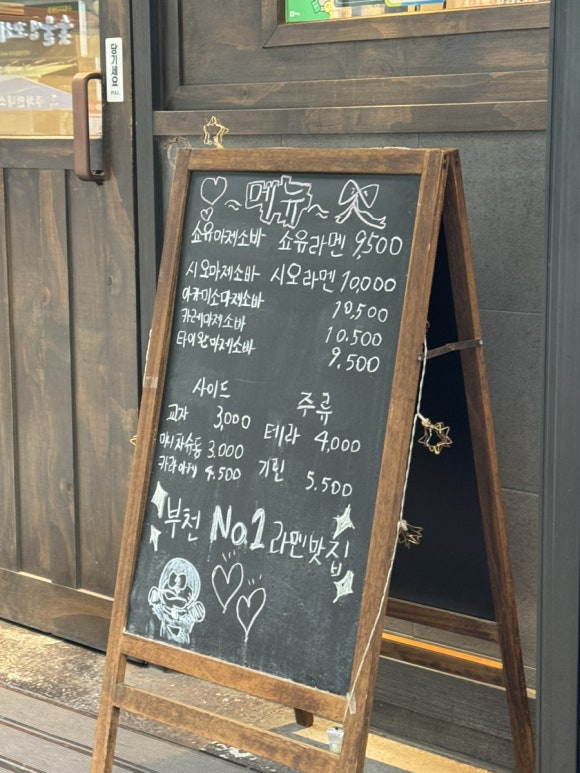 당기세요
PULL
메뉴
쇼유마제소바 쇼유라멘 9,500
시오마제소바 시오라멘 10,000
아카미소마제소바 10,500
카레마제소바 10.500
타이완마제소바 9.500
사이드
교자 3,000
미니차슈동 3.000
카라아게 4.500
주류
테라 4,000
기린 5.500
부천 No.1 라멘맛집